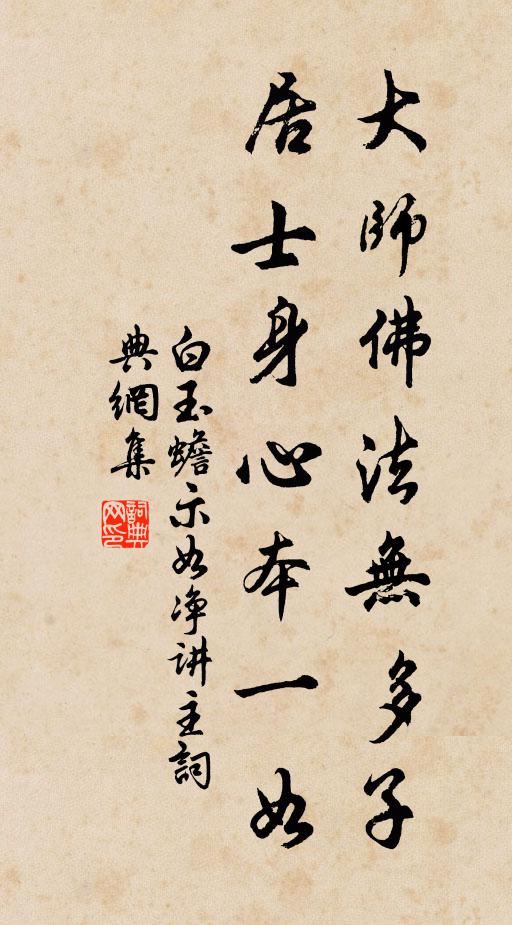 大師佛法無多子
居士身心本一如
白玉蟾示如净讲主詞
典網集
詞典
网印